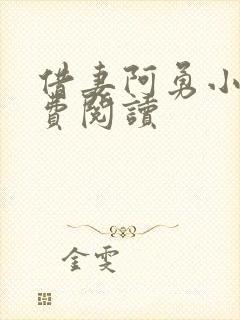 借妻阿勇小
費閱讀
金雯